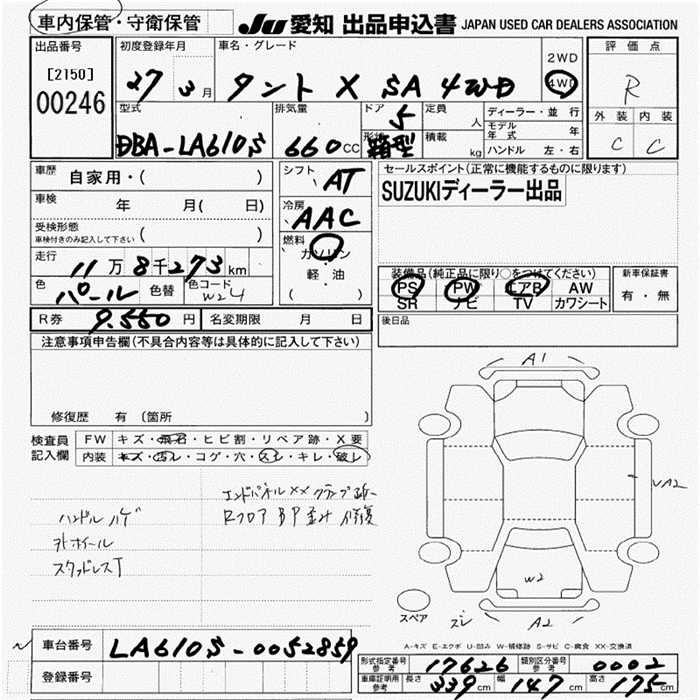 車内保管・守衛保管
JU 愛知 出品申込書 JAPAN USED CAR DEALERS ASSOCIATION
出品番号
[2150]
00246
初度登録年月
27 3月
車名・グレード
タント X SA 4WD
2WD
4WD
評価点
R
外装 内装
C C
型式
DBA-LA610S
排気量
660cc
ドア
5
形状
箱型
定員
人
積載
kg
ディーラー・並行
モデル年式 年
ハンドル 左・右
車歴
自家用・( )
車検
年 月( 日)
受検形態
車検付きのみ記入して下さい ( )
走行
11万8千273km
色
パール
色替
色コード
W24
シフト
AT
冷房
AAC
燃料
ガソリン
軽・油
( )
セールスポイント(正常に機能するものに限ります)
SUZUKIディーラー出品
装備品(純正品に限り○をつけてください)
PS PW エアB AW
SR ナビ TV カワシート
新車保証書
有・無
R券 9.550円
名変期限 月 日
後日品
注意事項申告欄(不具合内容等は具体的に記入して下さい)
修復歴 有 (箇所 )
検査員記入欄
FW キズ・飛石・ヒビ割・リペア跡・X要
内装 キズ・汚レ・コゲ・穴・スレ・キレ・破レ
ハンドルハゲ
外ホイール
スタッドレスT
エンドパネルXX クランプ跡
RフロアBP歪み 修復
A1
UA2
W2
スペア
スレ
A2
A-キズ E-エクボ U-凹み W-補修跡 S-サビ C-腐食 XX-交換済
車台番号 LA610S-0052859
登録番号
形式指定番号参考 17626
類別区分番号参考 0002
車庫証明用参考 長さ 339cm 幅 147cm 高さ 175cm